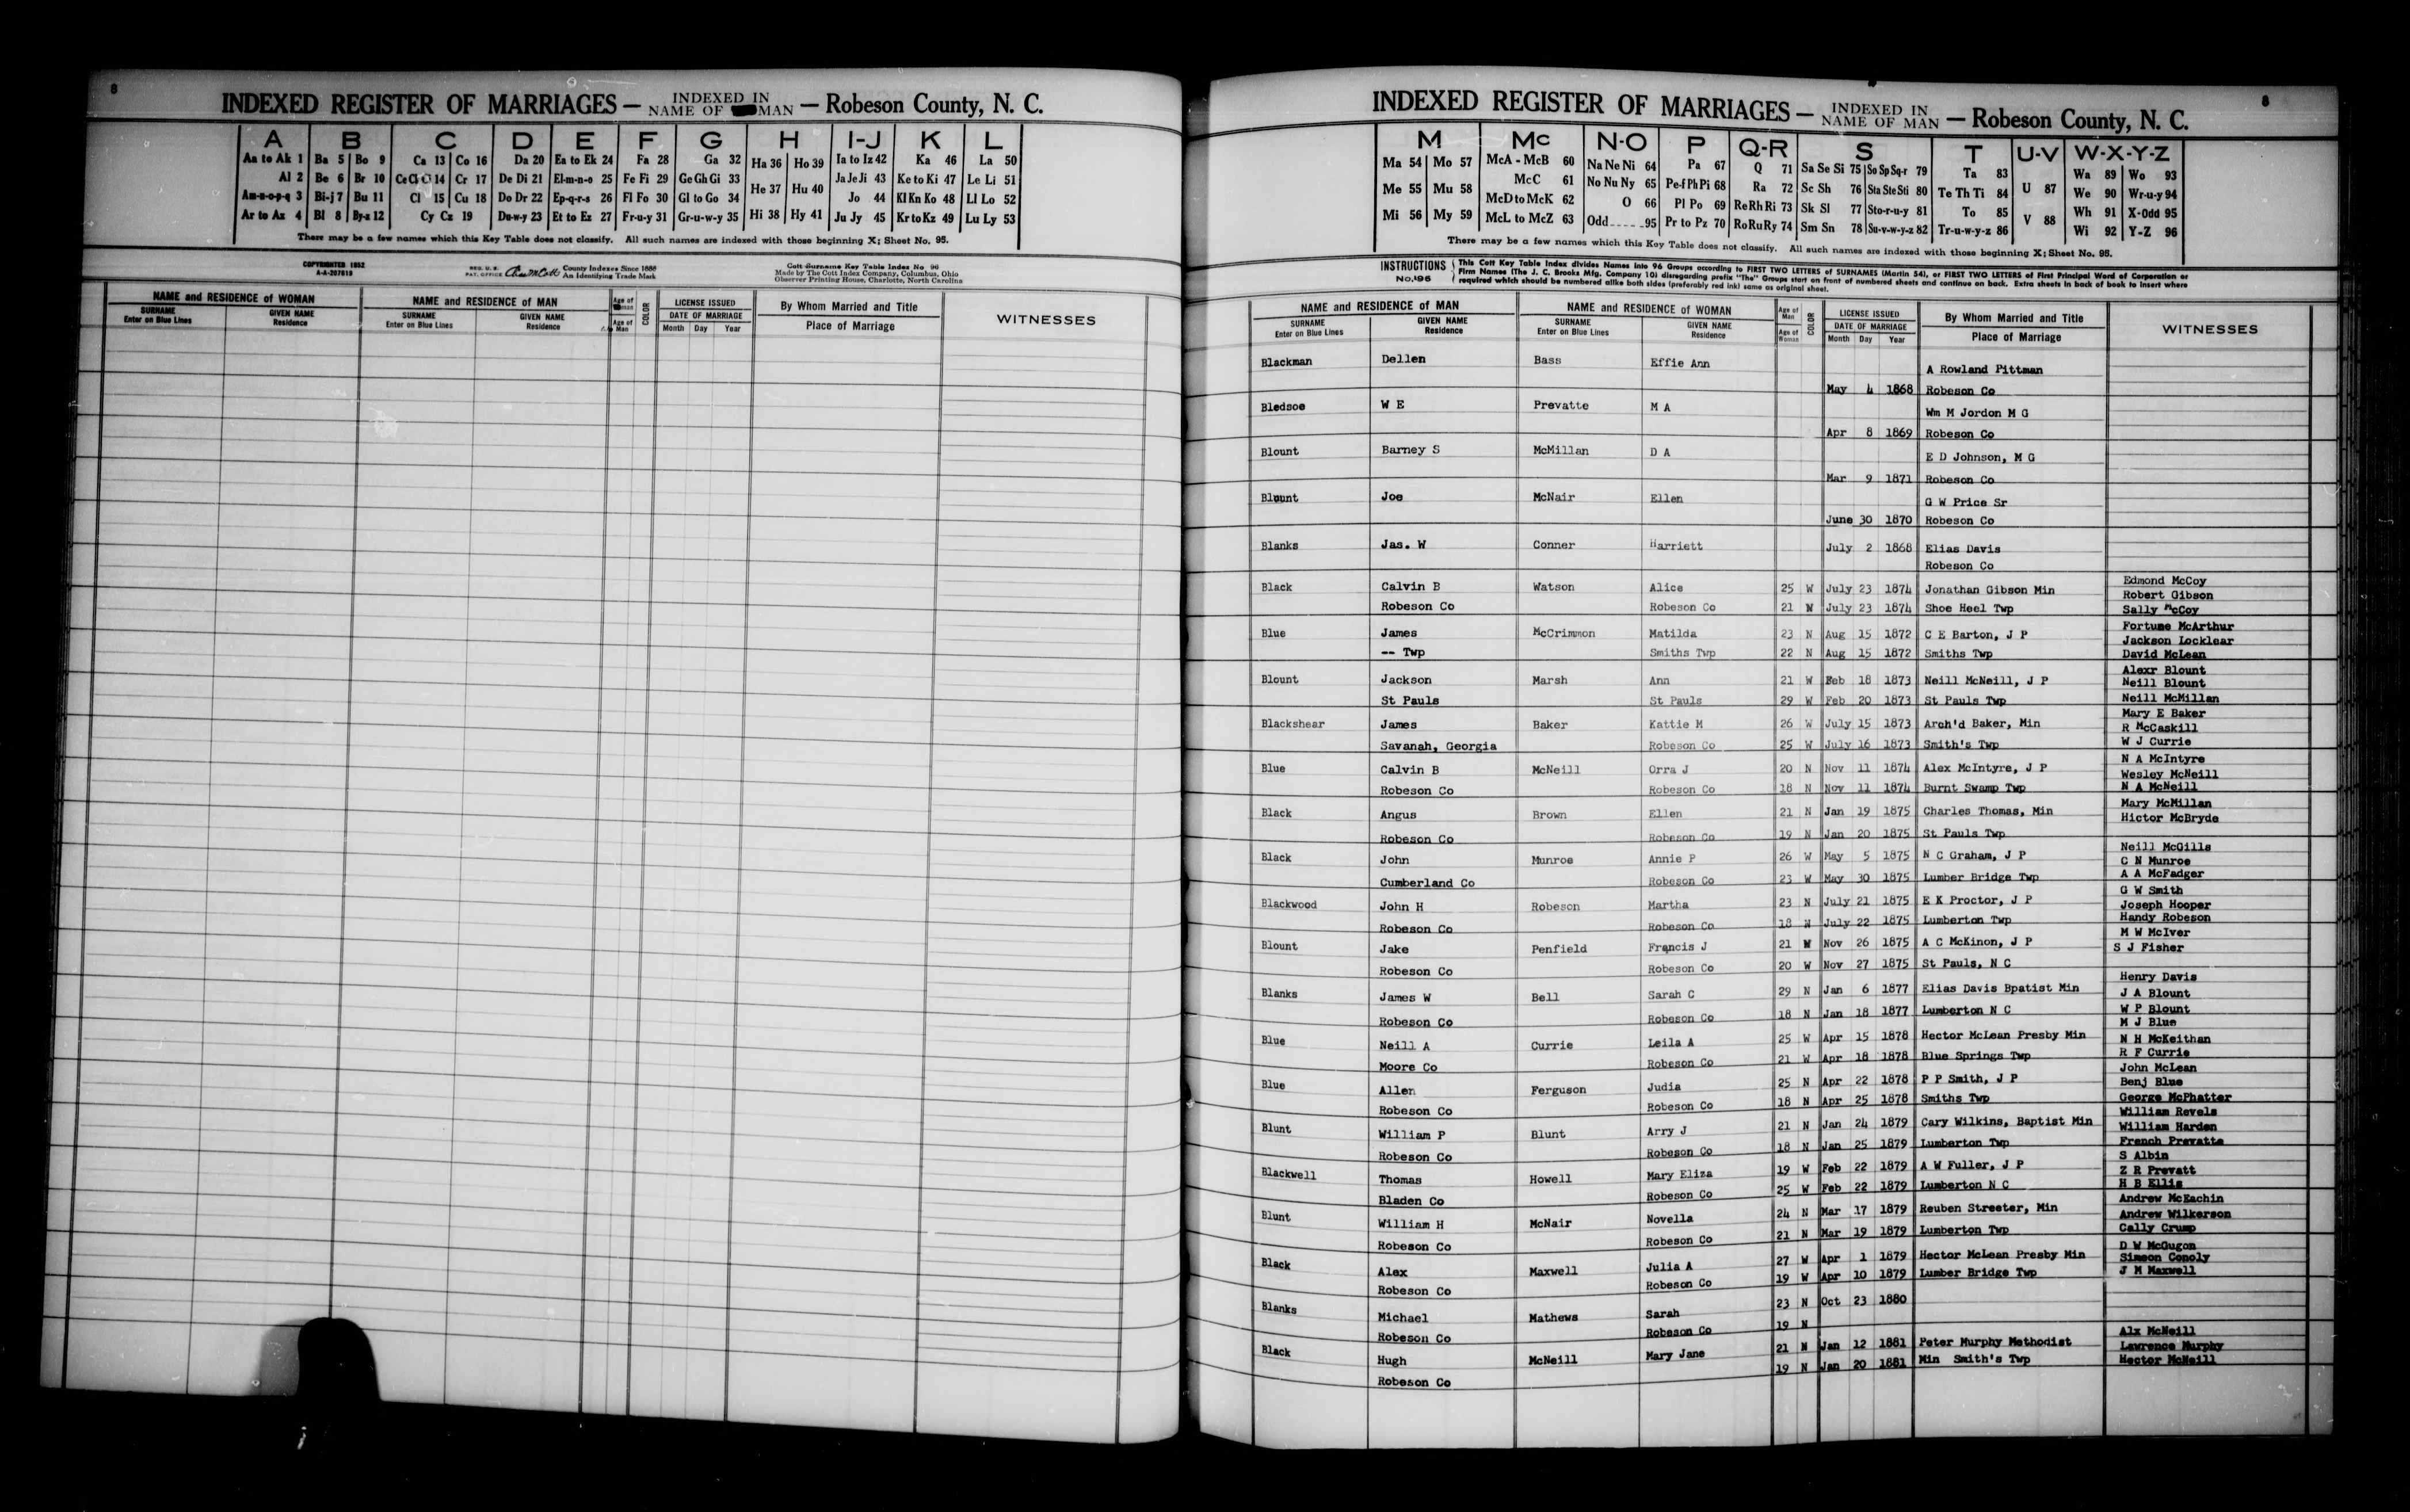 8
INDEXED REGISTER OF MARRIAGES — INDEXED IN NAME OF MAN — Robeson County, N. C.
A B C D E F G H I-J K L
Aa to Ak 1 Ba 5 Bo 9 Ca 13 Co 16 Da 20 Ea to Ek 24 Fa 28 Ga 32 Ha 36 Ho 39 Ia to Iz 42 Ka 46 La 50
Al 2 Be 6 Br 10 Ce Ch Ci 14 Cr 17 De Di 21 El-m-n-o 25 Fe Fi 29 Ge Gh Gi 33 He 37 Hu 40 Ja Je Ji 43 Ke to Ki 47 Le Li 51
Am-n-o-p-q 3 Bi-j 7 Bu 11 Cl 15 Cu 18 Do Dr 22 Ep-q-r-s 26 Fl Fo 30 Gl to Go 34 Jo 44 Kl Kn Ko 48 Ll Lo 52
Ar to Az 4 Bl 8 By-z 12 Cy Cz 19 Du-w-y 23 Et to Ez 27 Fr-u-y 31 Gr-u-w-y 35 Hi 38 Hy 41 Ju Jy 45 Kr to Kz 49 Lu Ly 53
There may be a few names which this Key Table does not classify. All such names are indexed with those beginning X; Sheet No. 95.
COPYRIGHTED 1952
A-A-207819
REG. U.S. PAT. OFFICE County Indexes Since 1888 An Identifying Trade Mark
Cott Surname Key Table Index No 96
Made by The Cott Index Company, Columbus, Ohio
Observer Printing House, Charlotte, North Carolina
NAME and RESIDENCE OF WOMAN NAME and RESIDENCE OF MAN Age of Woman COLOR LICENSE ISSUED By Whom Married and Title WITNESSES
SURNAME Enter on Blue Lines GIVEN NAME Residence SURNAME Enter on Blue Lines GIVEN NAME Residence Age of Man DATE OF MARRIAGE Month Day Year Place of Marriage
8
INDEXED REGISTER OF MARRIAGES — INDEXED IN NAME OF MAN — Robeson County, N. C.
M Mc N-O P Q-R S T U-V W-X-Y-Z
Ma 54 Mo 57 McA - McB 60 Na Ne Ni 64 Pa 67 Q 71 Sa Se Si 75 So Sp Sq-r 79 Ta 83 Wa 89 Wo 93
Me 55 Mu 58 McC 61 No Nu Ny 65 Pe-f Ph Pi 68 Ra 72 Sc Sh 76 Sta Ste Sti 80 Te Th Ti 84 U 87 We 90 Wr-u-y 94
Mi 56 My 59 McD to McK 62 O 66 Pl Po 69 Re Rh Ri 73 Sk Sl 77 Sto-r-u-y 81 To 85 V 88 Wh 91 X-Odd 95
McL to McZ 63 Odd 95 Pr to Pz 70 Ro Ru Ry 74 Sm Sn 78 Su-v-w-y-z 82 Tr-u-w-y-z 86 Wi 92 Y-Z 96
There may be a few names which this Key Table does not classify. All such names are indexed with those beginning X; Sheet No. 95.
INSTRUCTIONS No. 196
This Cott Key Table Index divides Names into 96 Groups according to FIRST TWO LETTERS of SURNAMES (Martin 54), or FIRST TWO LETTERS of First Principal Word of Corporation or
Firm Names (The J. C. Brooks Mfg. Company 10) disregarding prefix "The" Groups start on front of numbered sheets and continue on back. Extra sheets in back of book to insert where
required which should be numbered alike both sides (preferably red ink) same as original sheet.
NAME and RESIDENCE OF MAN NAME and RESIDENCE OF WOMAN Age of Man COLOR LICENSE ISSUED By Whom Married and Title WITNESSES
SURNAME Enter on Blue Lines GIVEN NAME Residence SURNAME Enter on Blue Lines GIVEN NAME Residence Age of Woman DATE OF MARRIAGE Month Day Year Place of Marriage
Blackman Dellen Bass Effie Ann A Rowland Pittman
May 4 1868 Robeson Co
Bledsoe W E Prevatte M A Wm M Jordon M G
Apr 8 1869 Robeson Co
Blount Barney S McMillan D A E D Johnson, M G
Mar 9 1871 Robeson Co
Blount Joe McNair Ellen G W Price Sr
June 30 1870 Robeson Co
Blanks Jas. W Conner Harriett July 2 1868 Elias Davis
Robeson Co
Black Calvin B Watson Alice 25 W July 23 1874 Jonathan Gibson Min Edmond McCoy
Robert Gibson
Robeson Co Robeson Co 21 W July 23 1874 Shoe Heel Twp Sally McCoy
Blue James McCrimmon Matilda 23 N Aug 15 1872 C E Barton, J P Fortune McArthur
Jackson Locklear
-- Twp Smiths Twp 22 N Aug 15 1872 Smiths Twp David McLean
Blount Jackson Marsh Ann 21 W Feb 18 1873 Neill McNeill, J P Alexr Blount
Neill Blount
St Pauls St Pauls 29 W Feb 20 1873 St Pauls Twp Neill McMillan
Blackshear James Baker Kattie M 26 W July 15 1873 Arch'd Baker, Min Mary E Baker
R McCaskill
Savanah, Georgia Robeson Co 25 W July 16 1873 Smith's Twp W J Currie
Blue Calvin B McNeill Orra J 20 N Nov 11 1874 Alex McIntyre, J P N A McIntyre
Wesley McNeill
Robeson Co Robeson Co 18 N Nov 11 1874 Burnt Swamp Twp N A McNeill
Black Angus Brown Ellen 21 N Jan 19 1875 Charles Thomas, Min Mary McMillan
Hictor McBryde
Robeson Co Robeson Co 19 N Jan 20 1875 St Pauls Twp
Black John Munroe Annie P 26 W May 5 1875 N C Graham, J P Neill McGills
C N Munroe
Cumberland Co Robeson Co 23 W May 30 1875 Lumber Bridge Twp A A McFadger
Blackwood John H Robeson Martha 23 N July 21 1875 E K Proctor, J P G W Smith
Joseph Hooper
Robeson Co Robeson Co 18 N July 22 1875 Lumberton Twp Handy Robeson
Blount Jake Penfield Francis J 21 W Nov 26 1875 A C McKinon, J P M W McIver
S J Fisher
Robeson Co Robeson Co 20 W Nov 27 1875 St Pauls, N C
Blanks James W Bell Sarah C 29 N Jan 6 1877 Elias Davis Bpatist Min Henry Davis
J A Blount
Robeson Co Robeson Co 18 N Jan 18 1877 Lumberton N C W P Blount
Blue Neill A Currie Leila A 25 W Apr 15 1878 Hector McLean Presby Min M J Blue
N H McKeithan
Moore Co Robeson Co 21 W Apr 18 1878 Blue Springs Twp R F Currie
Blue Allen Ferguson Judia 25 N Apr 22 1878 P P Smith, J P John McLean
Benj Blue
Robeson Co Robeson Co 18 N Apr 25 1878 Smiths Twp George McPhatter
Blunt William P Blunt Arry J 21 N Jan 24 1879 Cary Wilkins, Baptist Min William Revels
William Harden
Robeson Co Robeson Co 18 N Jan 25 1879 Lumberton Twp French Prevatte
Blackwell Thomas Howell Mary Eliza 19 W Feb 22 1879 A W Fuller, J P S Albin
Z R Prevatt
Bladen Co Robeson Co 25 W Feb 22 1879 Lumberton N C H B Ellis
Blunt William H McNair Novella 24 N Mar 17 1879 Reuben Streeter, Min Andrew McEachin
Andrew Wilkerson
Robeson Co Robeson Co 21 N Mar 19 1879 Lumberton Twp Cally Crump
Black Alex Maxwell Julia A 27 W Apr 1 1879 Hector McLean Presby Min D W McGugon
Simeon Conoly
Robeson Co Robeson Co 19 W Apr 10 1879 Lumber Bridge Twp J M Maxwell
Blanks Michael Mathews Sarah 23 N Oct 23 1880
Robeson Co Robeson Co 19 N
Black Hugh McNeill Mary Jane 21 N Jan 12 1881 Peter Murphy Methodist Alx McNeill
Lawrence Murphy
Robeson Co 19 N Jan 20 1881 Min Smith's Twp Hector McNeill